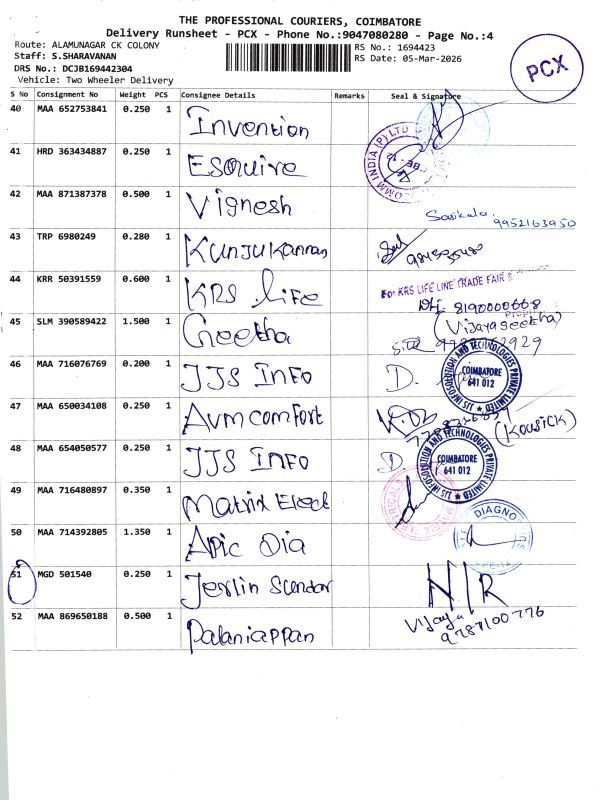 THE PROFESSIONAL COURIERS, COIMBATORE
Delivery Runsheet - PCX - Phone No.:9047080280 - Page No.:4
Route: ALAMUNAGAR CK COLONY
Staff: S.SHARAVANAN
DRS No.: DCJB169442304
Vehicle: Two Wheeler Delivery
RS No.: 1694423
RS Date: 05-Mar-2026
PCX
S No Consignment No Weight PCS Consignee Details Remarks Seal & Signature
40 MAA 652753841 0.250 1 Invention
41 HRD 363434887 0.250 1 Esquire
42 MAA 871387378 0.500 1 Vignesh Sasikala 9952163950
43 TRP 6980249 0.280 1 Kunjukannan
44 KRR 50391559 0.600 1 KRS Life For KRS LIFE LINE TRADE FAIR &
8190000668
45 SLM 390589422 1.500 1 Geetha (Vijayageetha)
46 MAA 716076769 0.200 1 JJS Info D. JJS INFOSOLUTION AND TECHNOLOGIES PRIVATE LIMITED COIMBATORE 641 012
47 MAA 650034108 0.250 1 Avm comfort (Kousick)
48 MAA 654050577 0.250 1 JJS Info D. JJS INFOSOLUTION AND TECHNOLOGIES PRIVATE LIMITED COIMBATORE 641 012
49 MAA 716480897 0.350 1 Matrix Elect
50 MAA 714392805 1.350 1 Apic Dia DIAGNO
51 MGD 501540 0.250 1 Jerlin Sundar N/R
52 MAA 869650188 0.500 1 Palaniappan Vijaya 9787100776